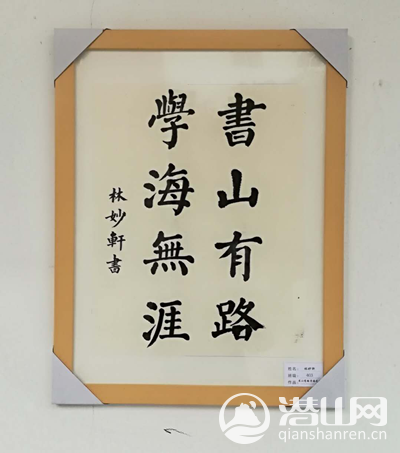 書山有路
學海無涯
林妙軒書
姓名：
班級：
作品：
潜山网
qianshanren.cn